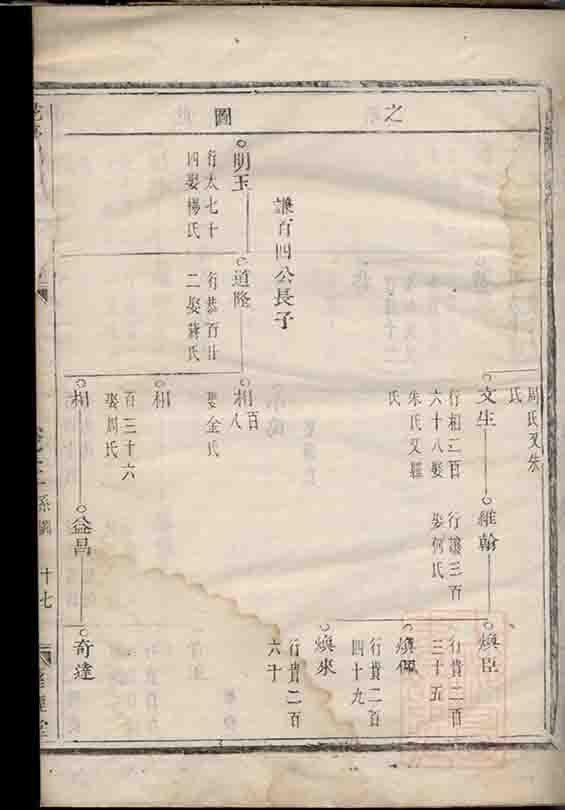 之
圖
周氏又朱
氏
文生
行相二百
六十八娶
朱氏又羅
氏
維翰
行讓三百
娶何氏
煥臣
行貴二百
三十五
煥佩
行貴二百
四十九
煥來
行貴二百
六十
謙百四公長子
明玉
行太七十
四娶楊氏
道隆
行恭百廿
二娶蔣氏
相
百
八
娶金氏
相
相
百三十六
娶周氏
益昌
奇達
系圖
十七